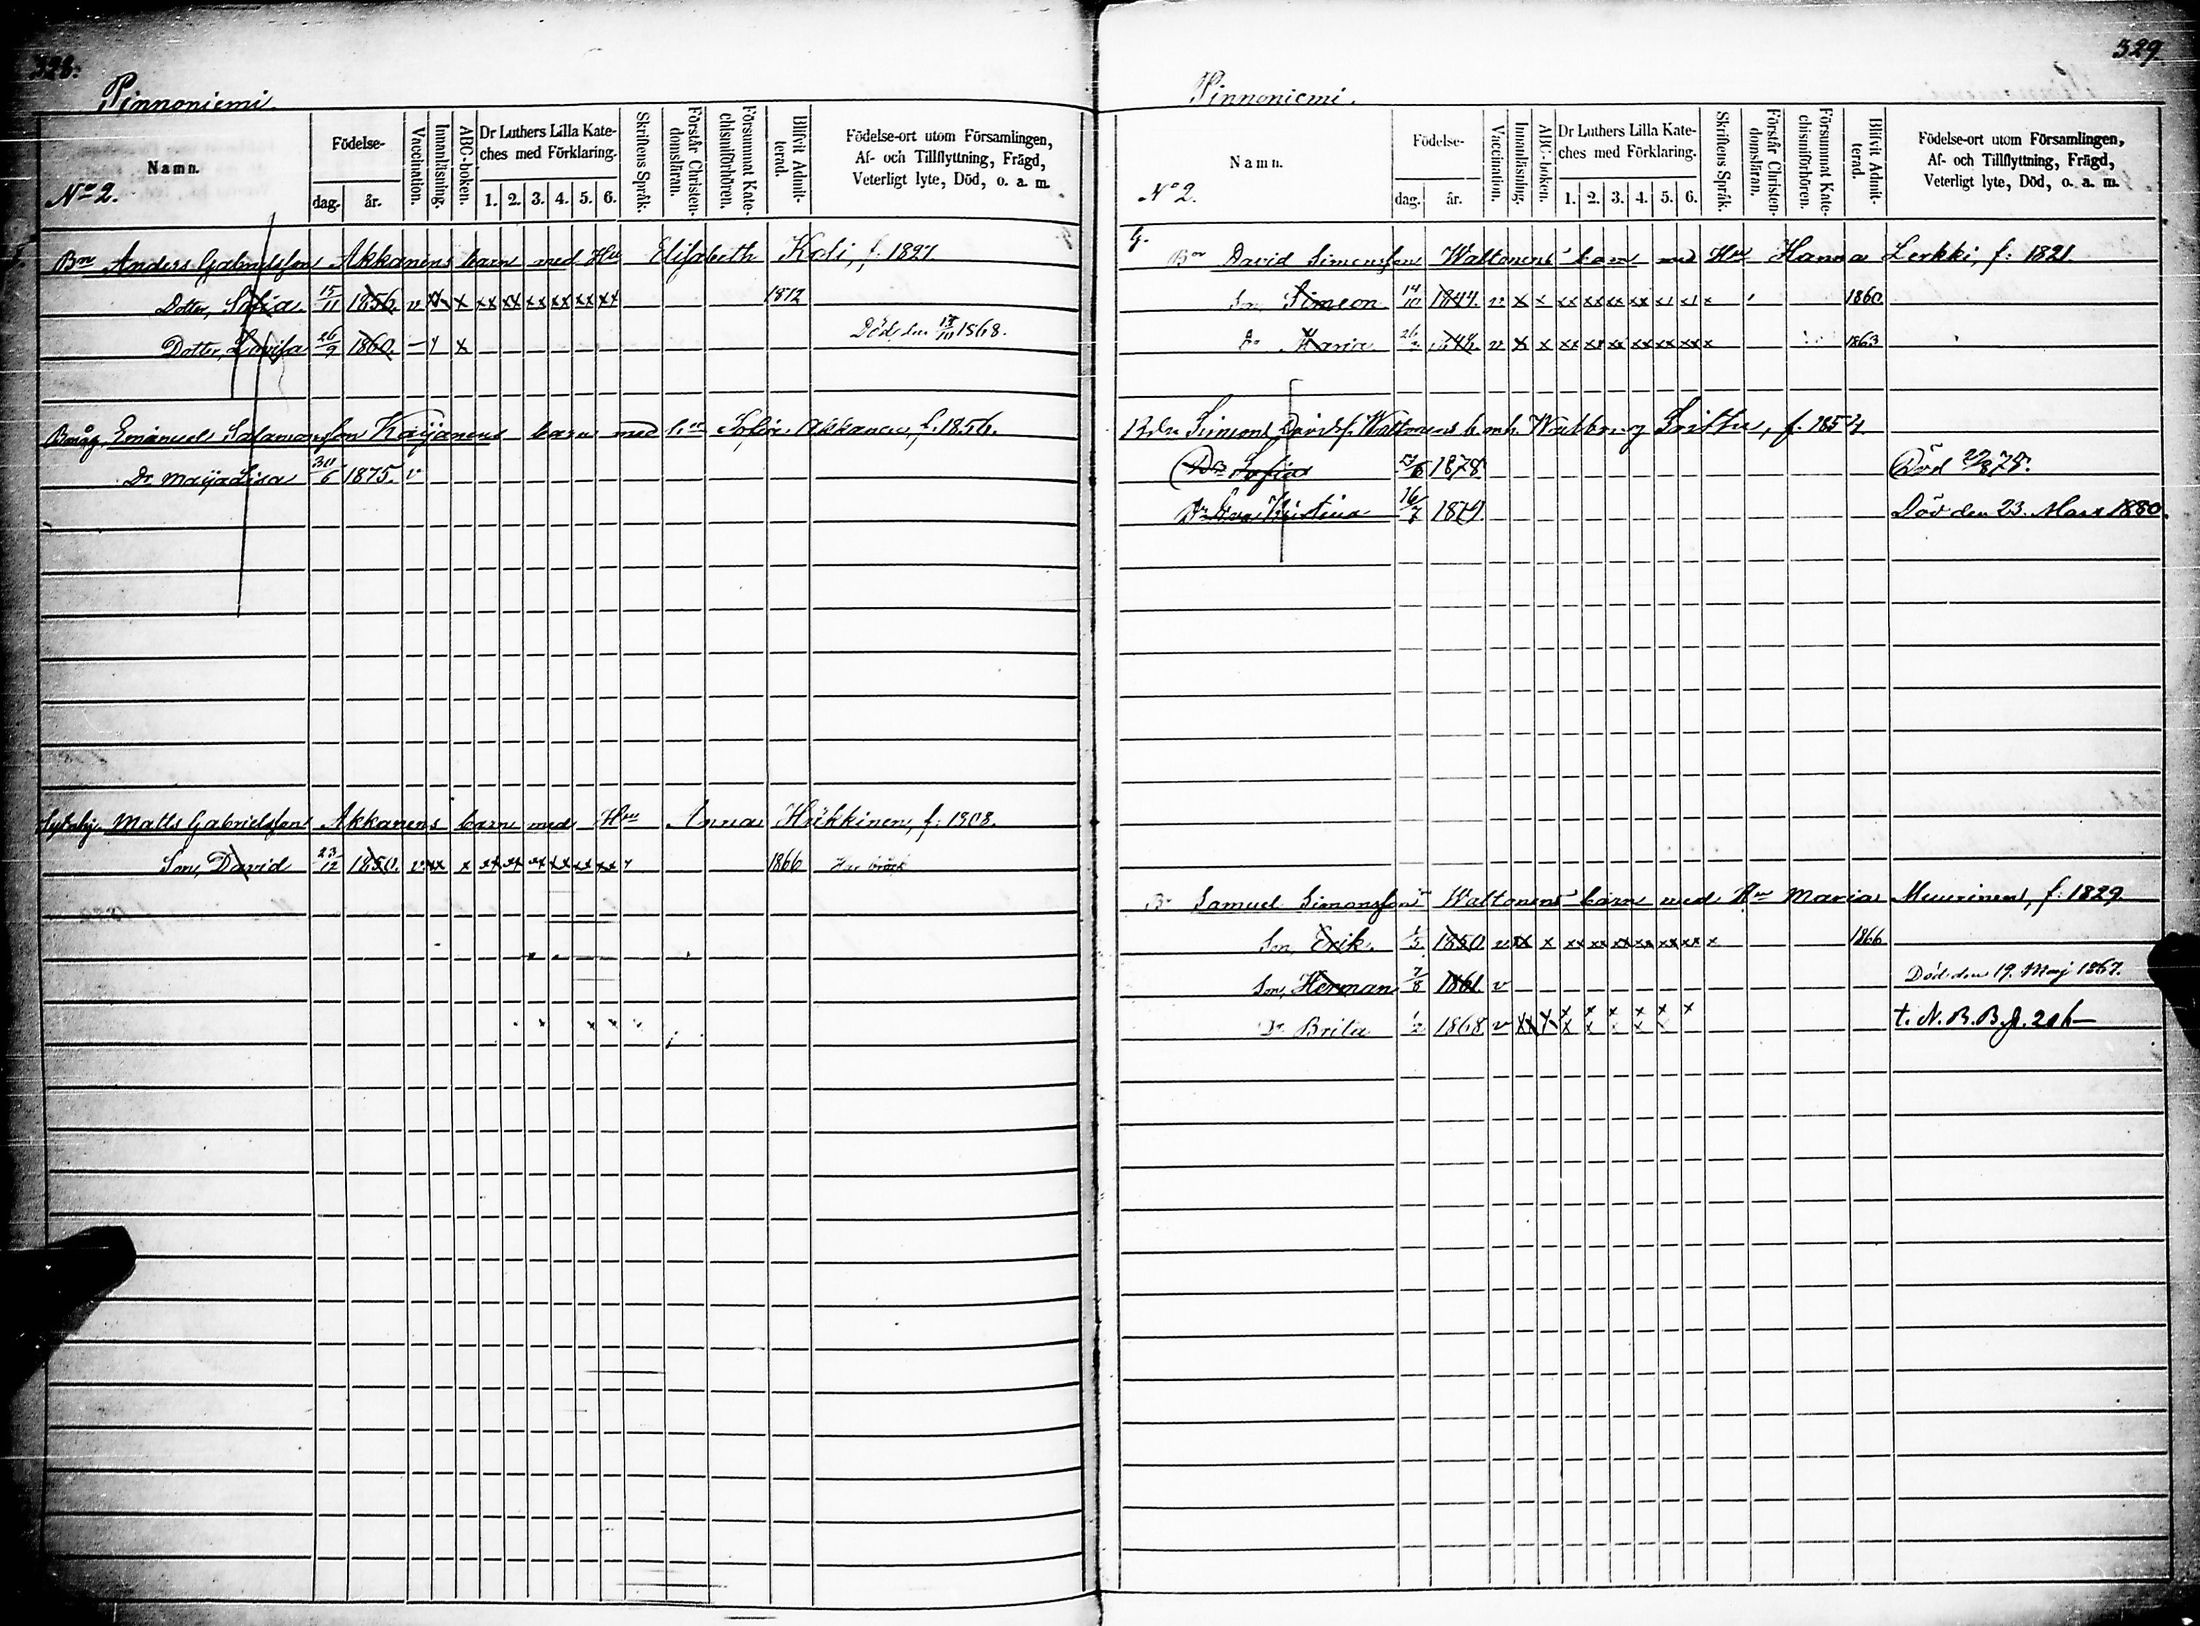 328.
Pinnoniemi
Namn.
No 2.
Födelse-
dag. år.
Vaccination.
Innanläsning.
ABC-boken.
Dr Luthers Lilla Kate-
ches med Förklaring.
1. 2. 3. 4. 5. 6.
Skriftens Språk.
Förstår Christen-
domsläran.
Försummat Kate-
chismiförhören.
Blifvit Admit-
terad.
Födelse-ort utom Församlingen,
Af- och Tillflyttning, Frägd,
Veterligt lyte, Död, o. a. m.
Bn Anders Gabrielsson Akkanens barn med Hu Elisabeth Koli, f. 1827
Dotter, Sofia 15/11 1856. v xx x xx xx xx xx xx xx 1872
Dotter, Lovisa 26/9 1860. x Död den 1868.
Emanuel Salamonsson Kaijanens barn med Sofia Akkanen, f. 1856.
Dr Maija Lisa 30/6 1875. v
Matts Gabrielsson Akkanens barn med Hu Anna Heikkinen, f. 1808.
Son, David 23/12 1850. v xx x xx xx xx xx xx xx x 1866
329.
Pinnoniemi.
Namn.
No 2.
Födelse-
dag. år.
Vaccination.
Innanläsning.
ABC-boken.
Dr Luthers Lilla Kate-
ches med Förklaring.
1. 2. 3. 4. 5. 6.
Skriftens Språk.
Förstår Christen-
domsläran.
Försummat Kate-
chismiförhören.
Blifvit Admit-
terad.
Födelse-ort utom Församlingen,
Af- och Tillflyttning, Frägd,
Veterligt lyte, Död, o. a. m.
Bn David Simonsson Waltonens barn med Hu Hanna Lerkki, f. 1821
Son, Simeon 14/10 1844. v x x xx xx xx xx x 1860
Dr Maria v x x xx xx xx xx xx xx x 1863
Simon Davidsf. Waltonens b. m. h. Walborg f. 1854
Dr Sofia 1878 Död 78.
Dr Kristina 16/7 1879 Död den 23. Mars 1880.
Bn Samuel Simonsson Waltonens barn med Hu Maria Meurinen, f. 1829.
Son, Erik. 1850 v xx x xx xx xx xx xx xx x 1866
Son, Herman 7/8 1861. v Död den 19. Maj 1867.
Dr Brita 1/2 1868 v xx x x x x x x x t. N. B. B. p. 206